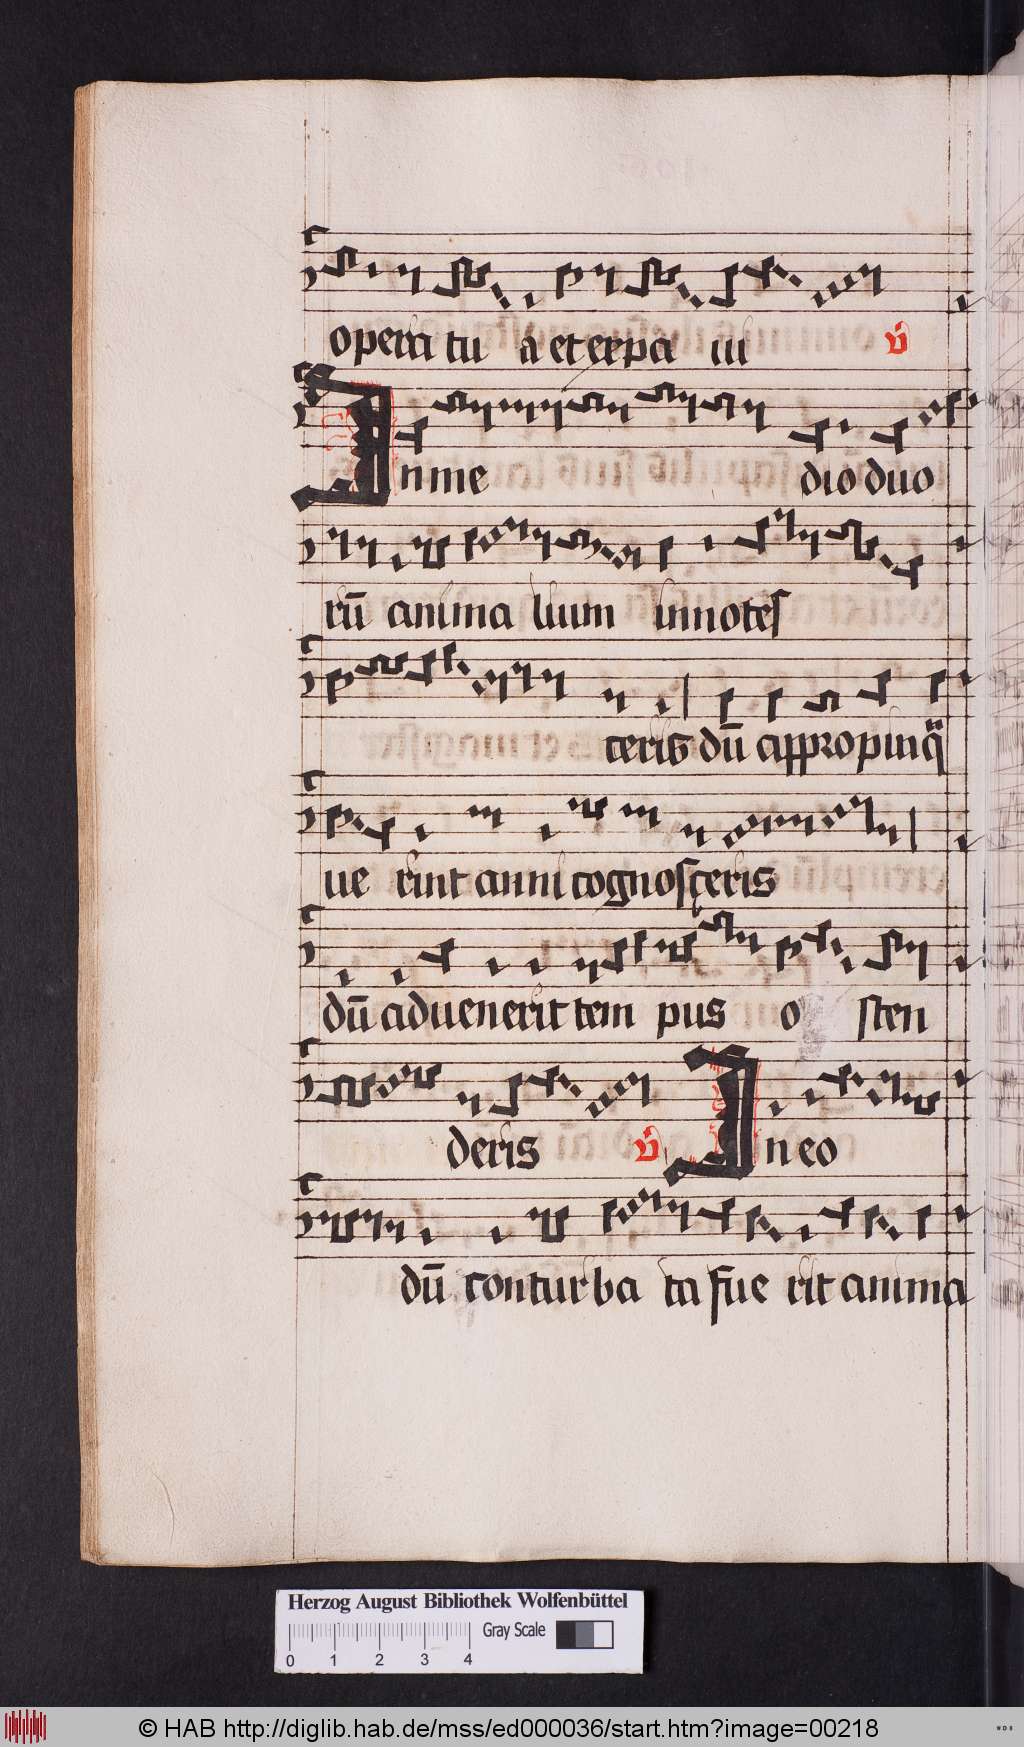 opera tu a et expa ui v̾
In me dio duo
rū anima lium innotes
ceris dū appropinq̄
ue rint anni cognosceris
dū aduenerit tem pus o sten
deris v̾ In eo
dū contur ba ta fue rit anima
Herzog August Bibliothek Wolfenbüttel
Gray Scale
0 1 2 3 4
© HAB http://diglib.hab.de/mss/ed000036/start.htm?image=00218